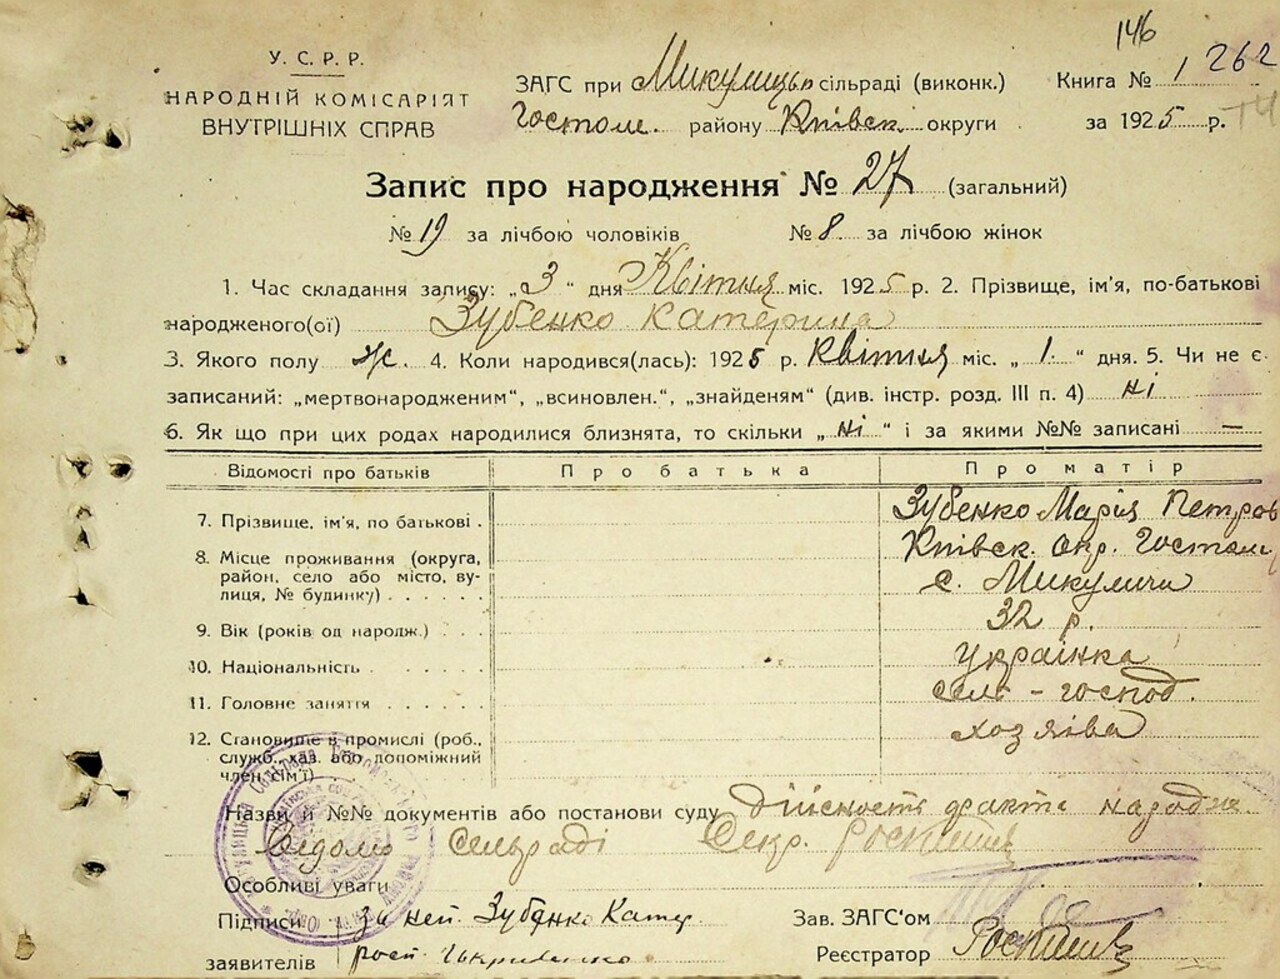 146
У. С. Р. Р.
НАРОДНІЙ КОМІСАРІЯТ
ВНУТРІШНІХ СПРАВ
ЗАГС при Микулицьк сільраді (виконк.) Книга № 1 262
Гостом. району Київск. округи за 1925 р.
Запис про народження № 27 (загальний)
№ 19 за лічбою чоловіків № 8 за лічбою жінок
1. Час складання запису: „3“ дня Квітня міс. 1925 р. 2. Прізвище, ім'я, по-батькові
народженого(ої) Зубенко Катерина
3. Якого полу ж. 4. Коли народився(лась): 1925 р. Квітня міс. „1“ дня. 5. Чи не є
записаний: „мертвонародженим“, „всиновлен.“, „знайденям“ (див. інстр. розд. III п. 4) ні
6. Як що при цих родах народилися близнята, то скільки „ні“ і за якими №№ записані —
Відомості про батьків Про батька Про матір
7. Прізвище, ім'я, по батькові . Зубенко Марія Петров
8. Місце проживання (округа, Київск. окр. Гостом
район, село або місто, ву- с. Микуличи
лиця, № будинку) . . . . . .
9. Вік (років од народж.) . . . 32 р.
10. Національність . . . . . . українка
11. Головне заняття . . . . . . сель-господ.
12. Становище в промислі (роб., хозяїва
служб., хаз. або допоміжний
член сім'ї)
Назви й №№ документів або постанови суду Дійсность факта народже
Відомо Сельраді Секр.
Особливі уваги
Підписи за неп. Зубенко Катер Зав. ЗАГС'ом
заявителів рост. Реєстратор